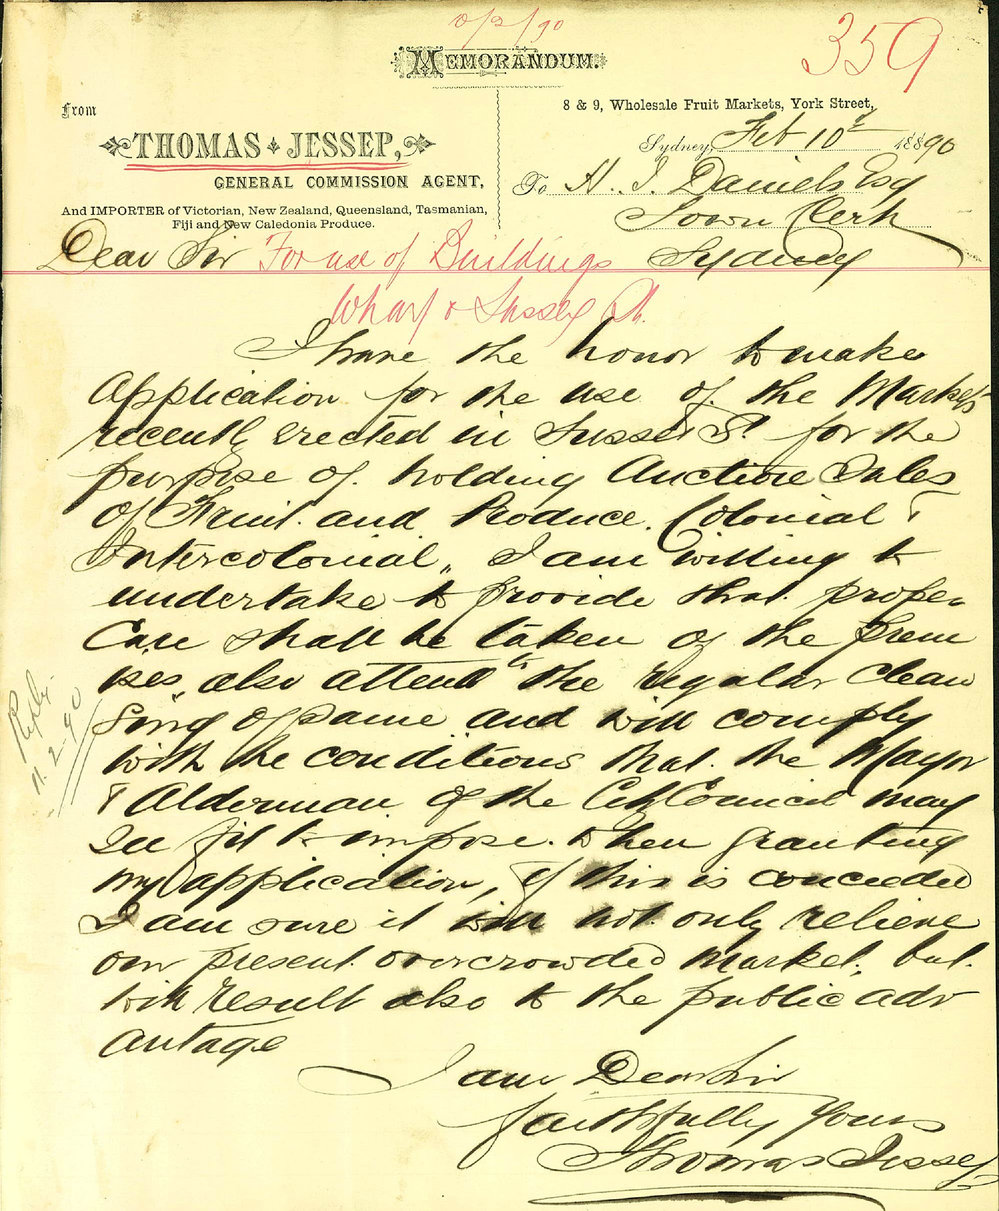 10/2/90
359
MEMORANDUM.
From
8 & 9, Wholesale Fruit Markets, York Street,
THOMAS JESSEP,
Sydney, Feb 10th 1890
GENERAL COMMISSION AGENT,
To H. J. Daniels Esq
And IMPORTER of Victorian, New Zealand, Queensland, Tasmanian,
Fiji and New Caledonia Produce.
Town Clerk
Sydney
Dear Sir
For use of Buildings
Wharf & Sussex St.
I have the honor to make
Application for the use of the Markets
recently erected in Sussex St. for the
purpose of holding Auction Sales
of Fruit and Produce. Colonial &
Intercolonial, I am willing to
undertake to provide that proper
Care shall be taken of the prem
ises, also attend to the regular clean
sing of same and will comply
with the conditions that the Mayor
& Alderman of the City Council may
See fit to impose when granting
my application, if this is conceded
I am sure it will not only relieve
our present overcrowded market, but
will result also to the public adv
antage
I am Dear Sir
faithfully Yours
Thomas Jessep
11.2.90